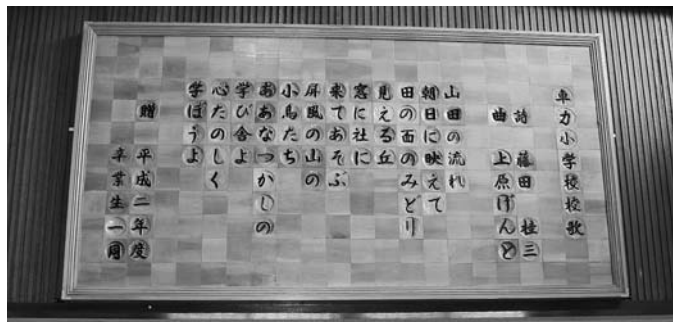 車力小学校校歌
詩 藤田 桂三
曲 上原げんと
山田の流れ
朝日に映えて
田の面のみどり
見える丘
宮に社に
来てあそぶ
屏風の山の
小鳥たち
ああなつかしの
学び舎よ
心たのしく
学ぼうよ
贈
平成二年度
卒業生一同